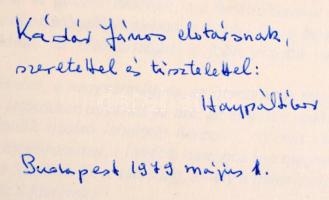 Kádár János elvtársnak,
szeretettel és tisztelettel:
Budapest 1979 május 1.